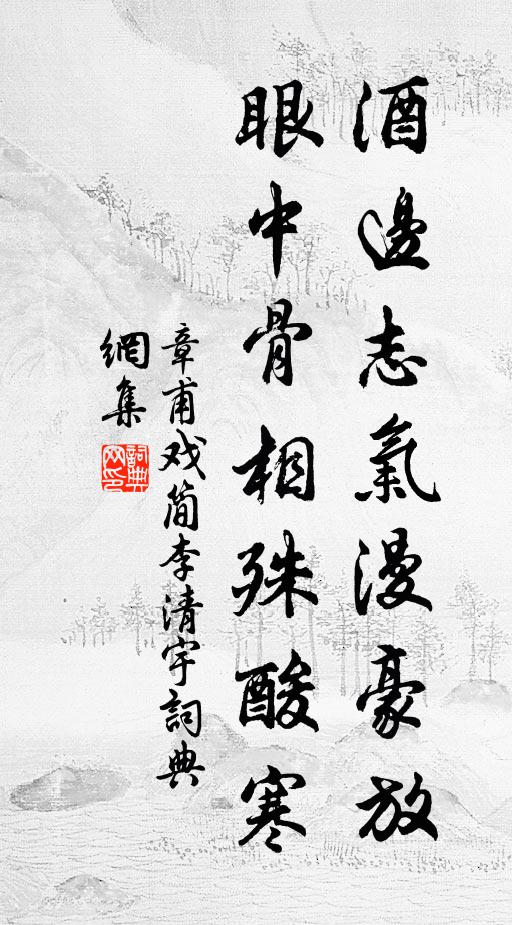 酒邊志氣漫豪放
眼中骨相殊酸寒
章甫戏简李清宇詞典
網集
詞典网印